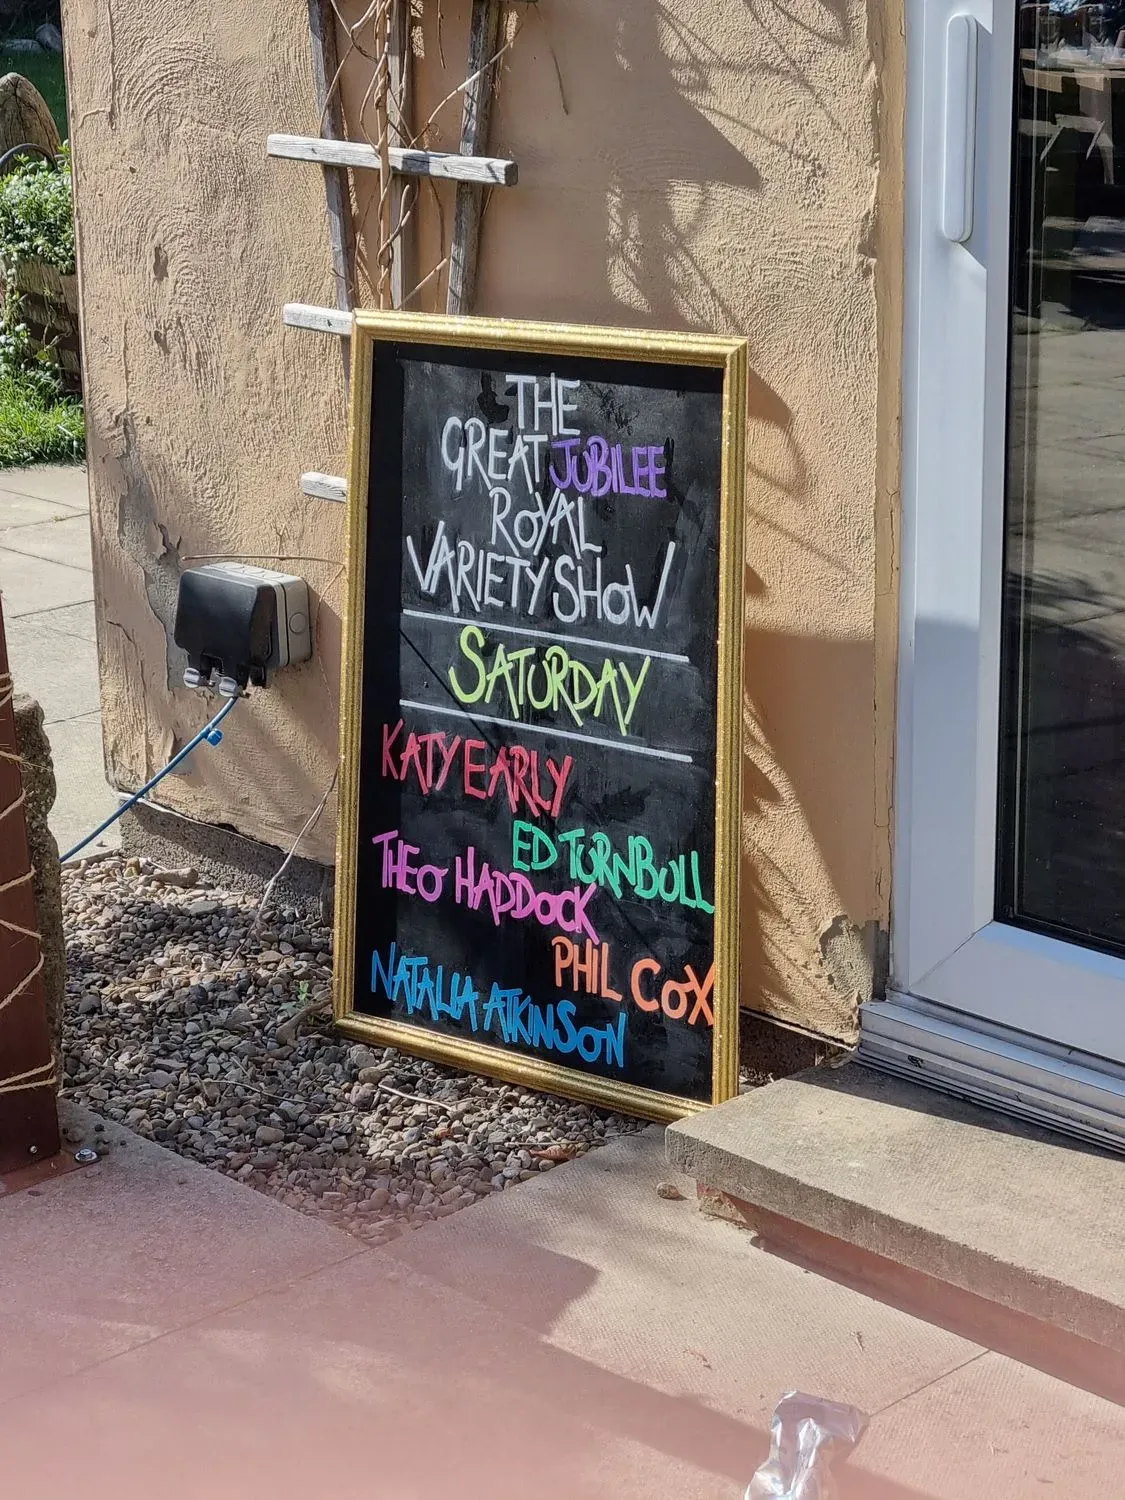 THE
GREAT JUBILEE
ROYAL
VARIETY SHOW
SATURDAY
KATY EARLY
ED TURNBULL
THEO HADDOCK
PHIL COX
NATALIA ATKINSON